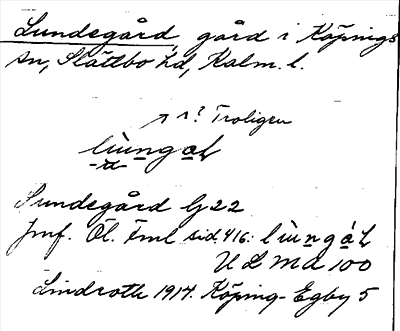 Lundegård, gård i Köpings
sn, Slättbo hd, Kalm. l.
↗ 1? Troligen
lùngaL
Lundegård G22
Jmf. Öl. Fml sid. 416: lùngáL
ULMA 100
Lindroth 1914. Köping-Egby 5